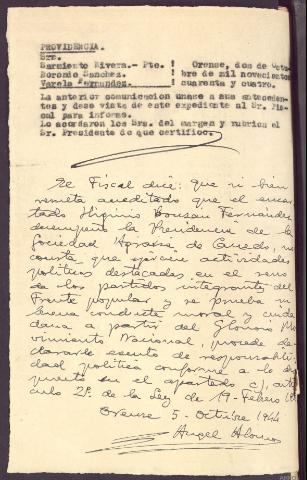 PROVIDENCIA.
Sres.
Sarmiento Rivera.- Pte. ! Orense, dos de Octu-
Borondo Sanchez. ! bre de mil novecientos
Varela Fernandez. ! cuarenta y cuatro.
La anterior comunicacion unase a sus anteceden-
tes y dese vista de este expediente al Sr. Fis-
cal para informe.
Lo acordaron los Srs. del margen y rubrica el
Sr. Presidente de que certifico.
El Fiscal dice: que si bien
resulta acreditado que el encar-
tado Higinio Bouzan Fernandez
desempeñó la Presidencia de la
Sociedad Agraria de Canedo, no
consta que ejerciese actividades
políticas destacadas en el seno
de los partidos integrantes del
Frente popular y se prueba su
buena conducta moral y ciuda-
dana a partir del Glorioso Mo-
vimiento Nacional, procede de-
clararle exento de responsabili-
dad política conforme a lo dis-
puesto en el apartado c), artí-
culo 2º de la Ley de 19-Febrero
Orense 5-Octubre 1944
Angel Alonso